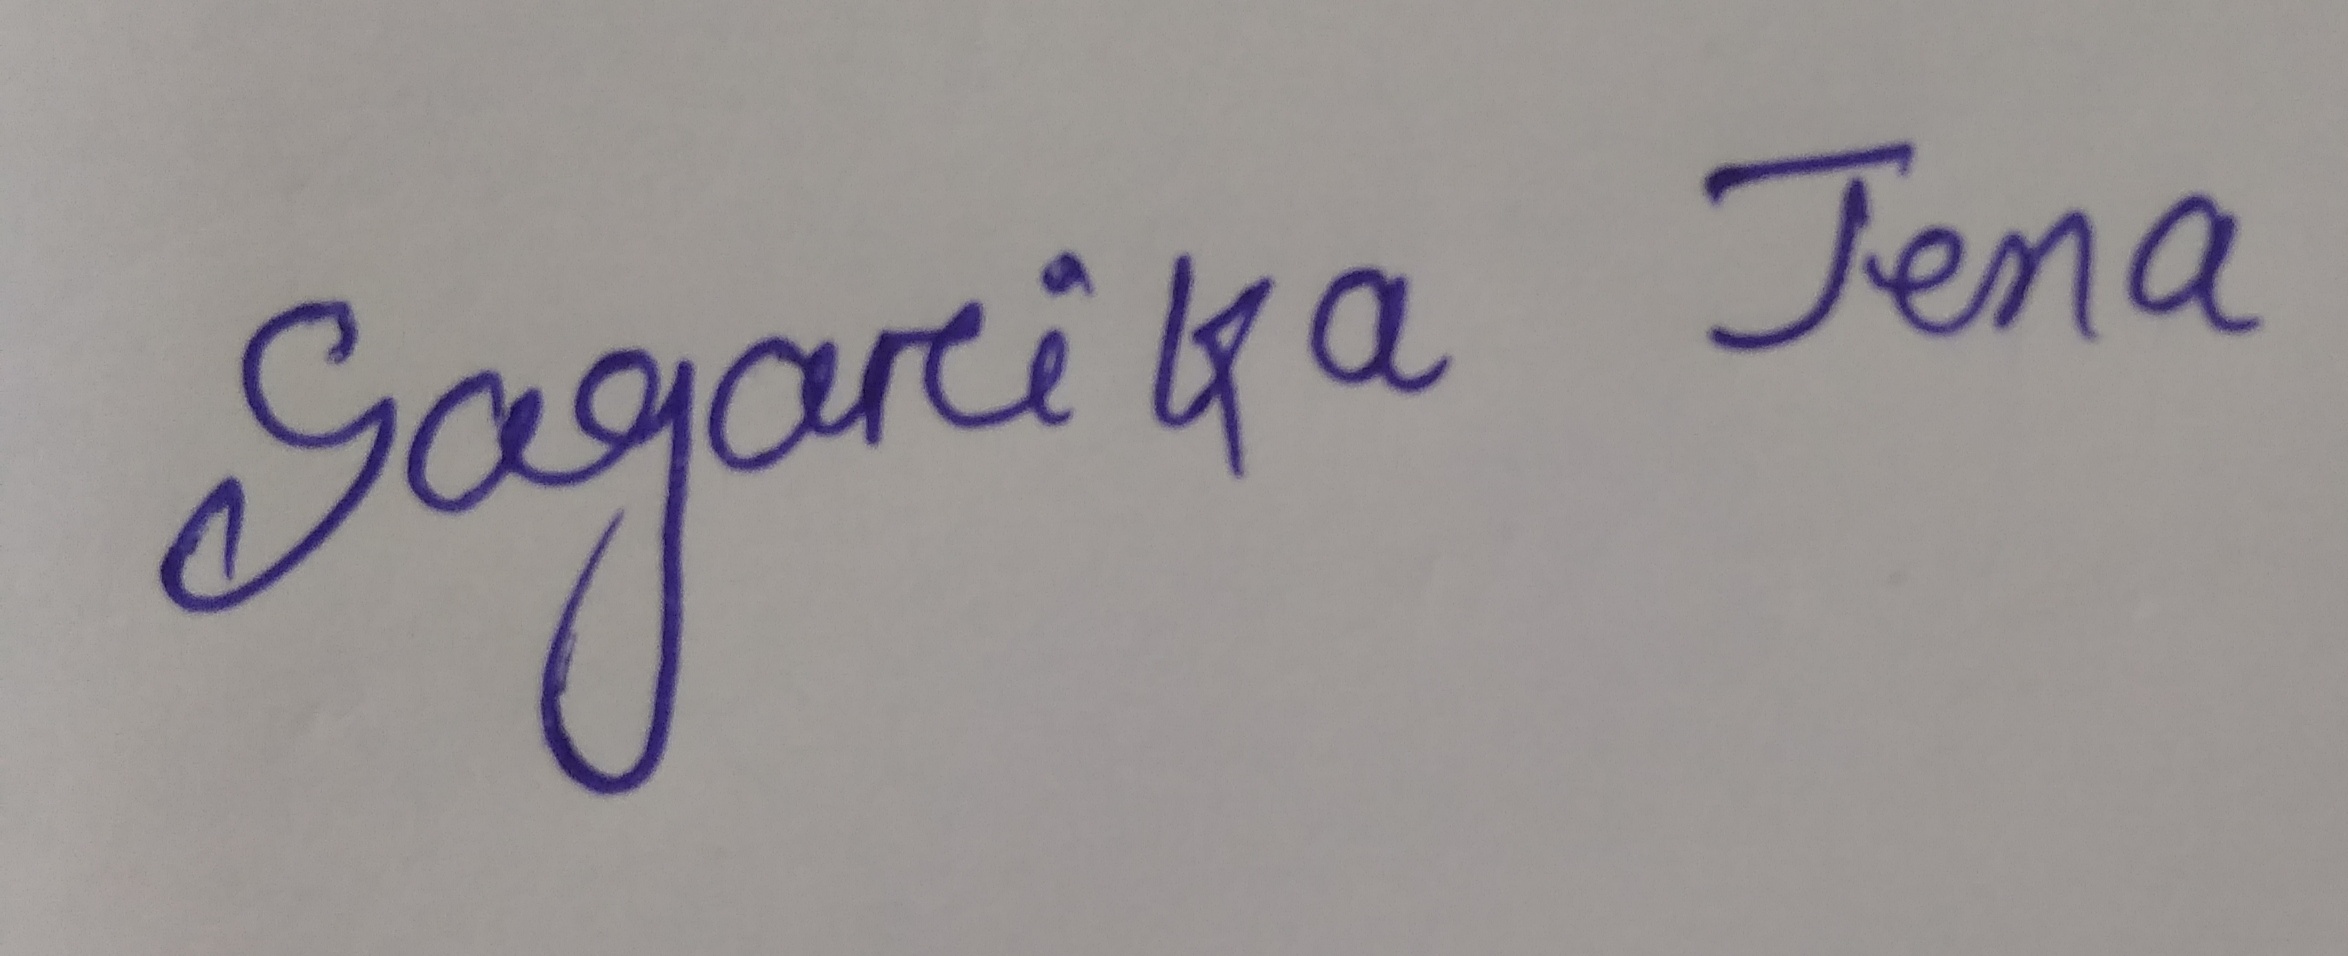 Sagarika Jena